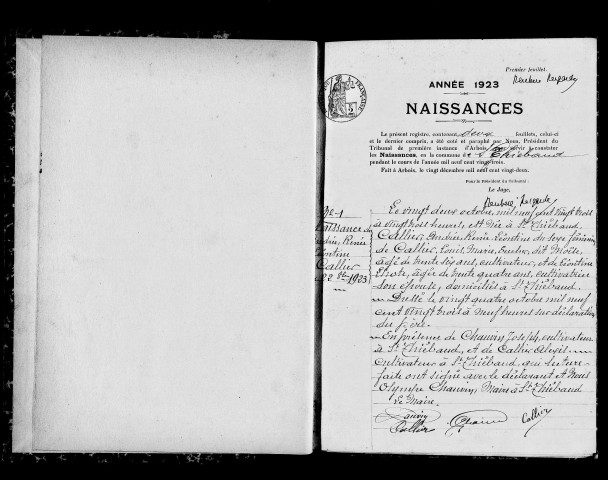 Premier feuillet.
ANNÉE 1923
NAISSANCES
Le présent registre, contenant deux feuillets, celui-ci
et le dernier compris, a été coté et paraphé par Nous, Président du
Tribunal de première instance d'Arbois, pour servir à constater
les Naissances, en la commune de St Thiébaud
pendant le cours de l'année mil neuf cent vingt-trois.
Fait à Arbois, le vingt décembre mil neuf cent vingt-deux.
Pour le Président du Tribunal :
Le Juge,
No 1
Naissance de
Andrée, Renée
Léontine
Callier
22 8bre 1923
Le vingt deux octobre, mil neuf cent vingt trois
à vingt trois heures, est née à St Thiébaud,
Callier, Andrée, Renée, Léontine du sexe féminin
de Callier, Louis, Marie,
âgé de trente six ans, cultivateur, et de Léontine
âgée de trente quatre ans, cultivatrice
son épouse, domiciliés à St Thiébaud.
Dressé le vingt quatre octobre mil neuf
cent vingt trois à neuf heures sur déclaration
du père.
En présence de Chauvin Joseph, cultivateur
à St Thiébaud, et de Callier Alexis
cultivateur à St Thiébaud, qui, lecture
faite ont signé avec le déclarant et Nous
Olympe Chauvin, Maire à St Thiébaud
Le Maire.
Chauvin
Callier
Callier